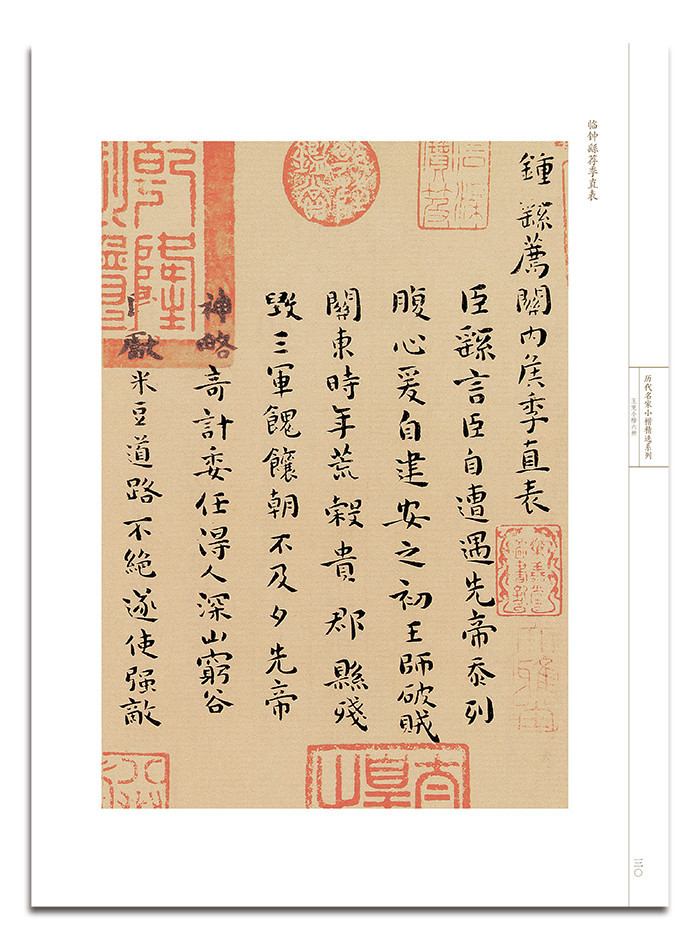 临钟繇荐季直表
历代名家小楷精选系列
王宠小楷六种
鍾繇薦關内侯季直表
臣繇言臣自遭遇先帝忝列
腹心爰自建安之初王師破賊
關東時年荒穀貴郡縣殘
毁三軍餽饟朝不及夕先帝
神略奇計委任得人深山窮谷
獻米豆道路不絶遂使强敵
乾隆
三〇